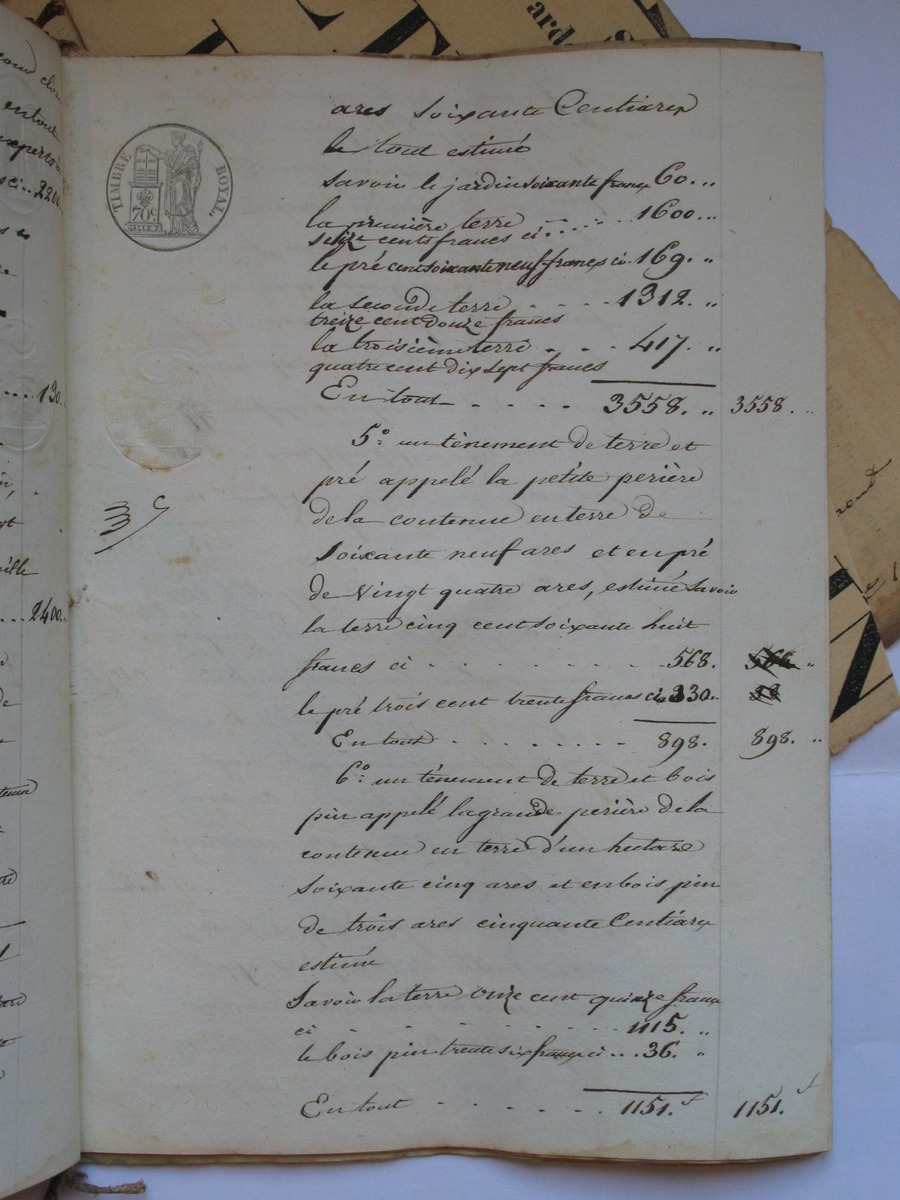 ard
TIMBRE ROYAL.
70c
ares soixante Centiares
le tout estimé
Savoir le jardin soixante francs 60. ..
la première terre - - - - 1600...
seize cents francs ci....
le pré cent soixante neuf francs ci. 169. ..
la seconde terre - - - - 1312. ..
treize cent douze francs
la troisième terre - - - 417. ..
quatre cent dix sept francs
En tout - - - - 3558. .. 3558. ..
5° un tènement de terre et
pré appelé la petite perière
de la contenue en terre de
soixante neuf ares et en pré
de vingt quatre ares, estimé savoir
la terre cinq cent soixante huit
francs ci - - - - - - - 568.
le pré trois cent trente francs ci 330..
En tout - - - - - - 898. 898. ..
6° un ténement de terre et bois
pin appelé la grande perière de la
contenue en terre d'un hectare
soixante cinq ares et en bois pin
de trois ares cinquante Centiares
estimé
Savoir la terre onze cent quinze francs
ci - - - - - - - - 1115. ..
le bois pin trente six francs ci ... 36. "
En tout - - - - - - 1151. f 1151. f
2200
130
2400